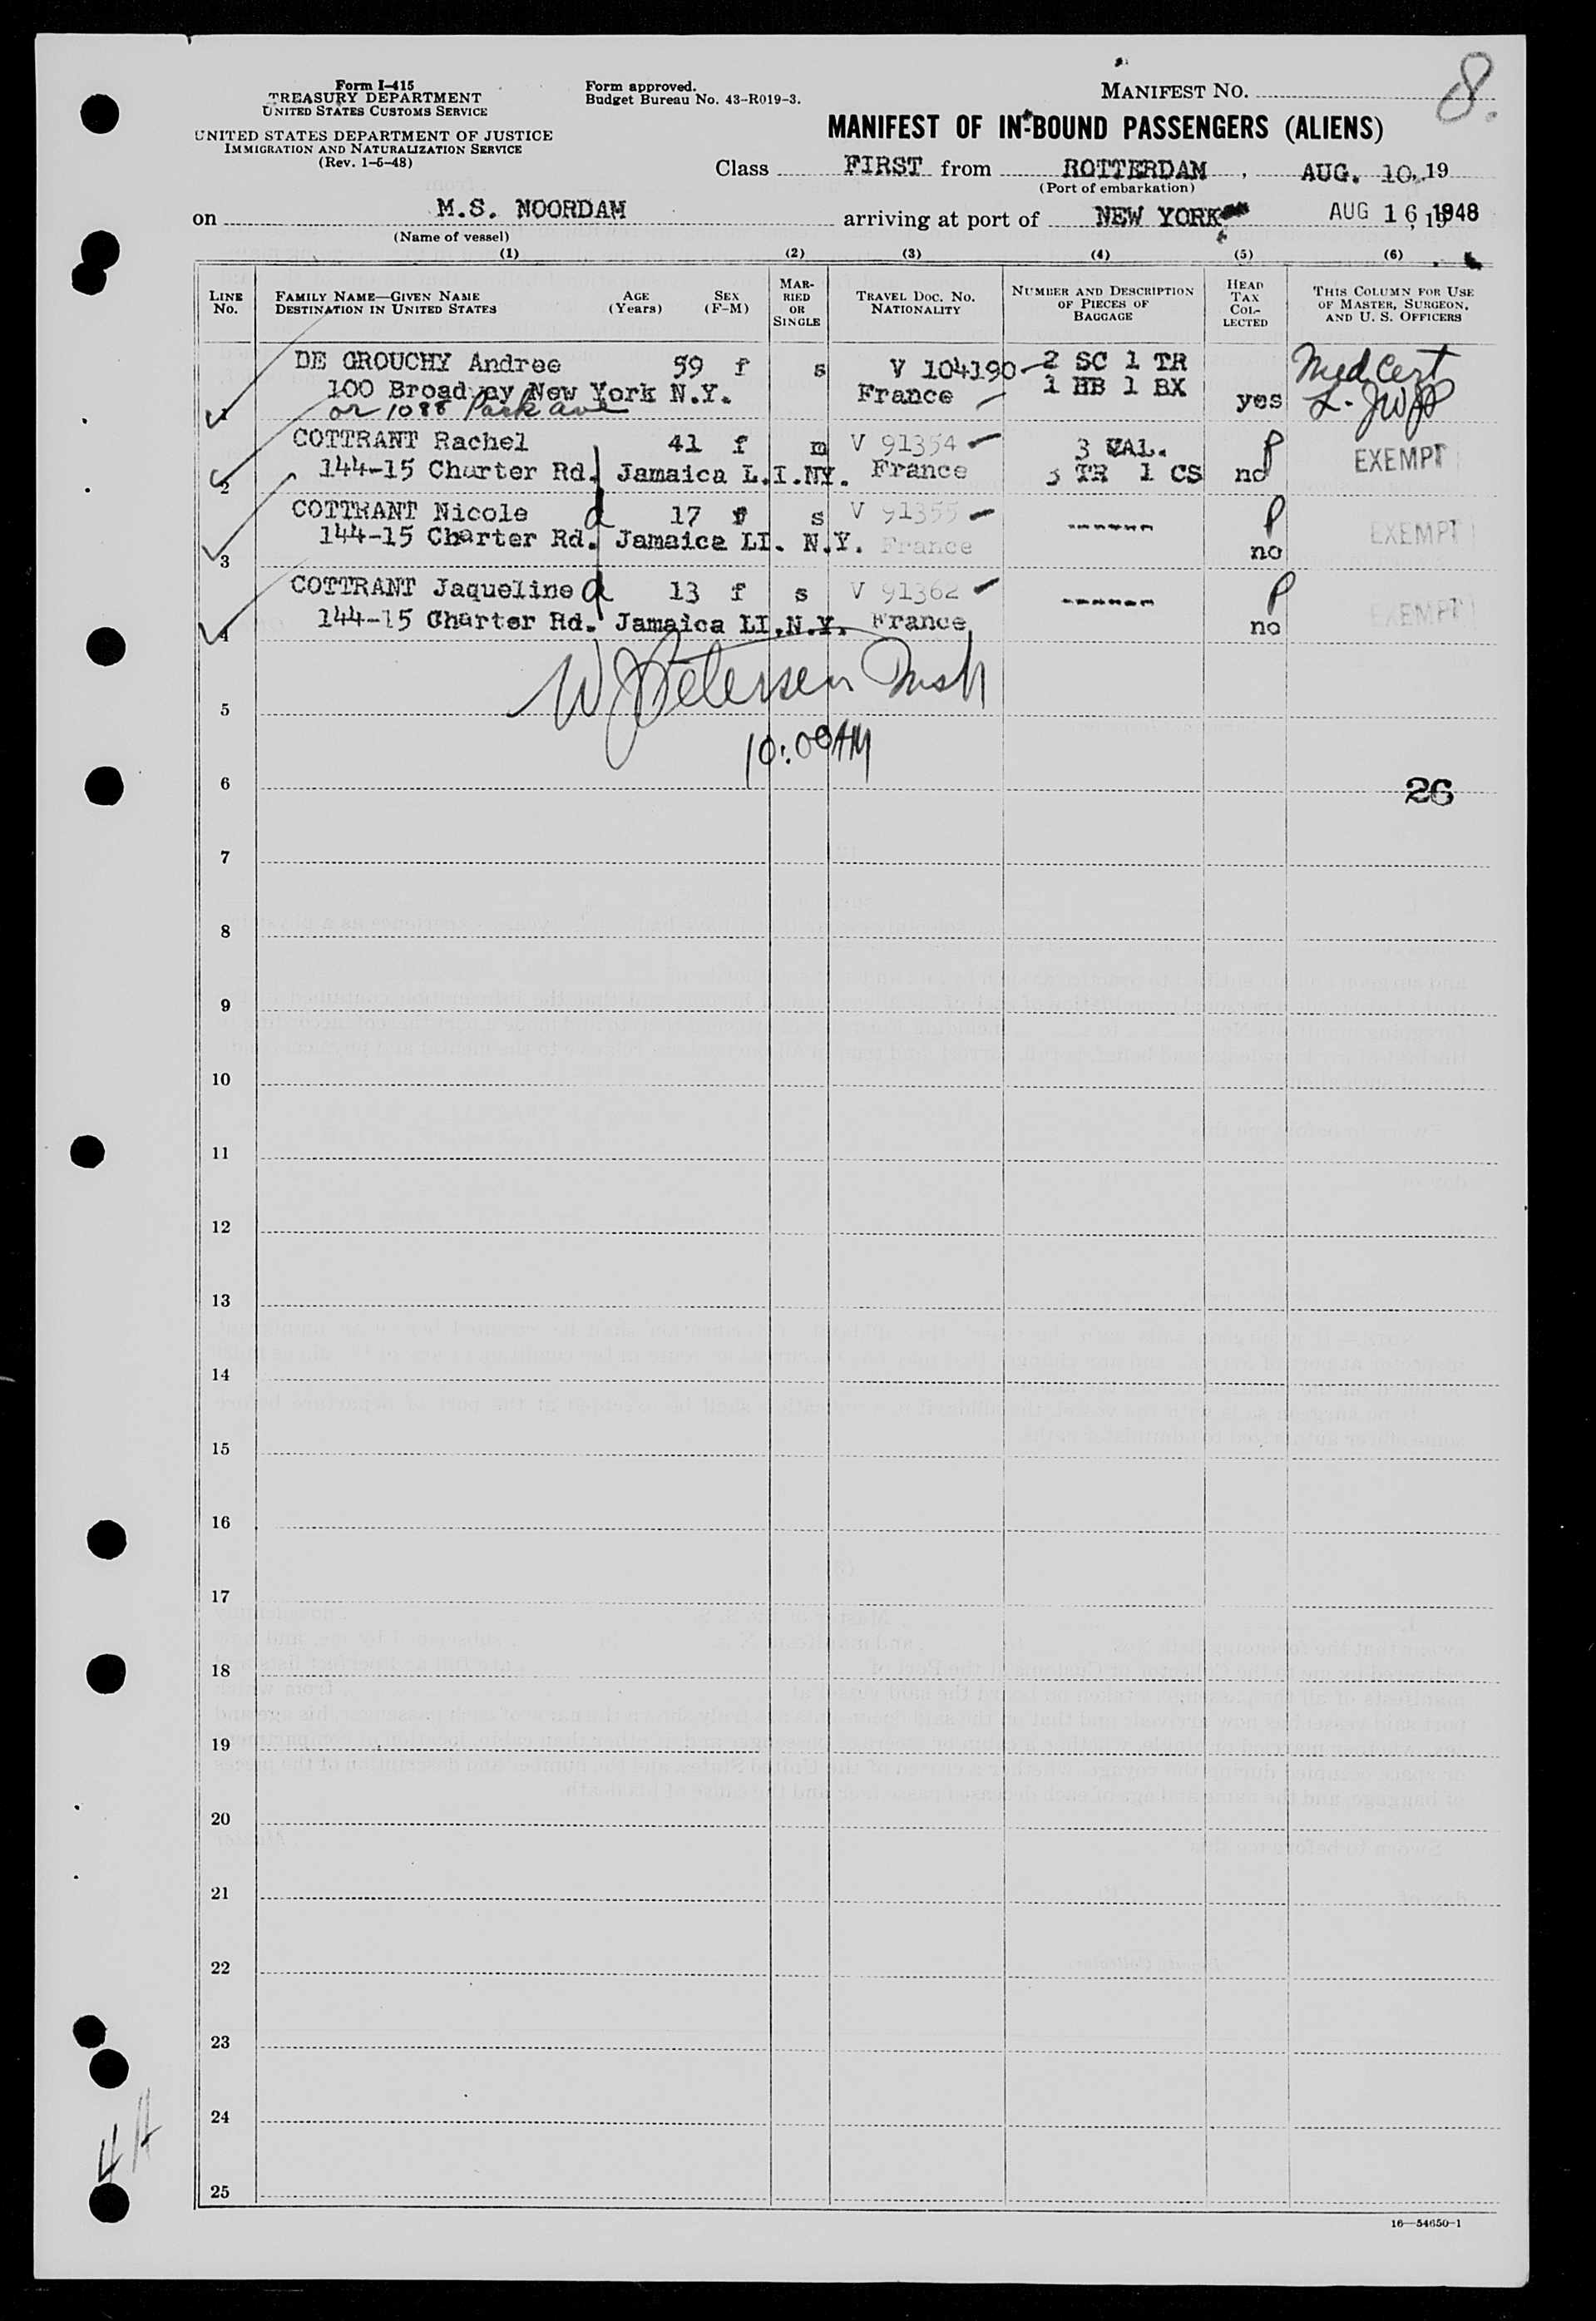 Form I-415
TREASURY DEPARTMENT
UNITED STATES CUSTOMS SERVICE
UNITED STATES DEPARTMENT OF JUSTICE
IMMIGRATION AND NATURALIZATION SERVICE
(Rev. 1-6-48)
Form approved.
Budget Bureau No. 43-R019-3.
MANIFEST NO. 8.
MANIFEST OF IN-BOUND PASSENGERS (ALIENS)
Class FIRST from ROTTERDAM, AUG. 10, 19
(Port of embarkation)
on M.S. NOORDAM arriving at port of NEW YORK AUG 16, 1948
(Name of vessel)
(1) (2) (3) (4) (5) (6)
LINE No.
FAMILY NAME—GIVEN NAME
DESTINATION IN UNITED STATES
AGE (Years)
SEX (F-M)
MARRIED OR SINGLE
TRAVEL DOC. NO.
NATIONALITY
NUMBER AND DESCRIPTION OF PIECES OF BAGGAGE
HEAD TAX COLLECTED
THIS COLUMN FOR USE OF MASTER, SURGEON, AND U. S. OFFICERS
DE GROUCHY Andree 59 f s V 104190 2 SC 1 TR Med Cert
100 Broadway New York N.Y. France 1 HB 1 BX yes
1 or 1088 Park Ave
COTTRANT Rachel 41 f m V 91354 3 VAL. P EXEMPT
2 144-15 Charter Rd. Jamaica L.I.NY. France 3 TR 1 CS no
COTTRANT Nicole d 17 f s V 91355 ------- P EXEMPT
3 144-15 Charter Rd. Jamaica LI. N.Y. France no
COTTRANT Jaqueline d 13 f s V 91362 ------- P EXEMPT
4 144-15 Charter Rd. Jamaica LI.N.Y. France no
W Petersen
5
10:00 AM
6 26
7
8
9
10
11
12
13
14
15
16
17
18
19
20
21
22
23
24
25
16—54650-1